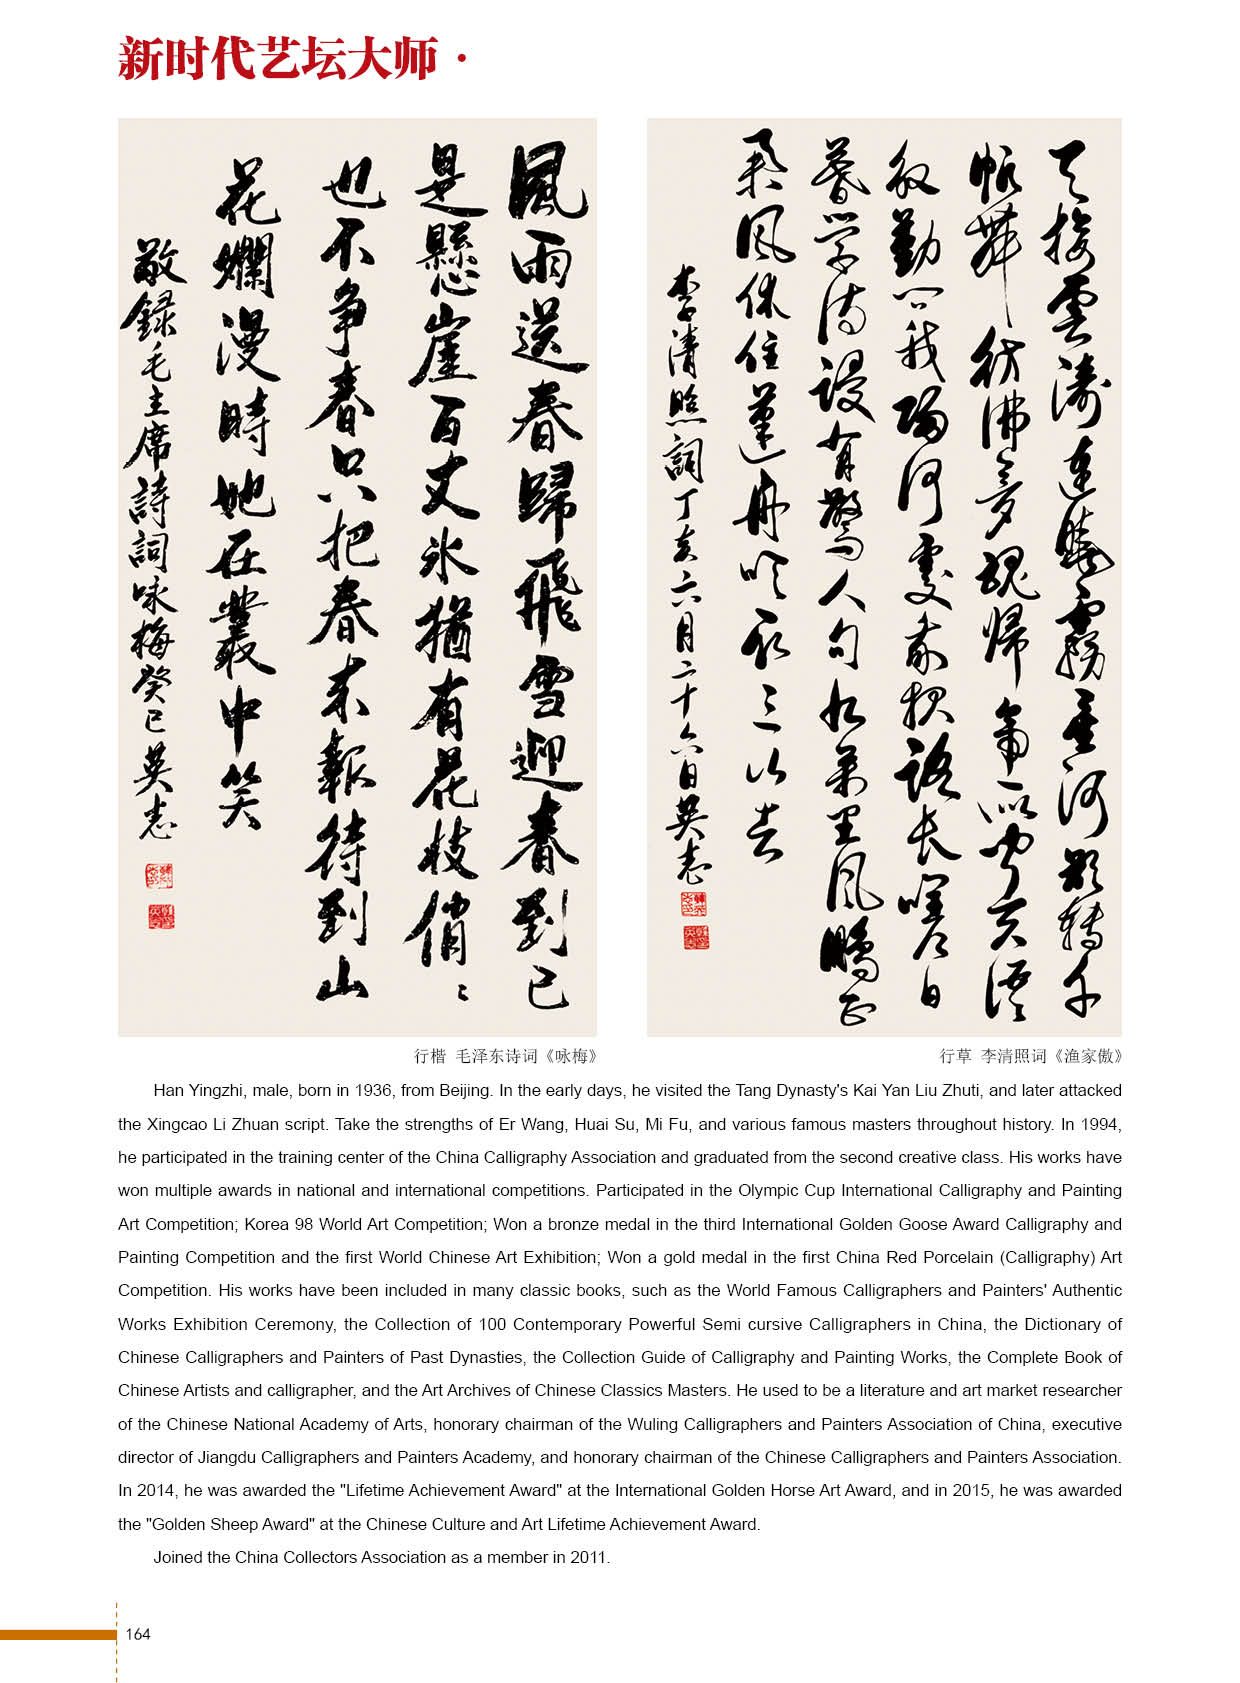 新时代艺坛大师·
風雨送春歸飛雪迎春到已
是懸崖百丈冰猶有花枝俏〻
也不争春只把春来報待到山
花爛漫時她在叢中笑
敬録毛主席詩詞咏梅癸巳英志
行楷 毛泽东诗词《咏梅》
天接雲濤連曉霧星河欲轉千
帆舞彷彿夢魂歸帝所聞天語
殷勤问我歸何處我報路長嗟日
暮学诗謾有驚人句九萬里風鵬正
举風休住蓬舟吹取三山去
李清照詞丁亥六月二十六日英志
行草 李清照词《渔家傲》
Han Yingzhi, male, born in 1936, from Beijing. In the early days, he visited the Tang Dynasty's Kai Yan Liu Zhuti, and later attacked
the Xingcao Li Zhuan script. Take the strengths of Er Wang, Huai Su, Mi Fu, and various famous masters throughout history. In 1994,
he participated in the training center of the China Calligraphy Association and graduated from the second creative class. His works have
won multiple awards in national and international competitions. Participated in the Olympic Cup International Calligraphy and Painting
Art Competition; Korea 98 World Art Competition; Won a bronze medal in the third International Golden Goose Award Calligraphy and
Painting Competition and the first World Chinese Art Exhibition; Won a gold medal in the first China Red Porcelain (Calligraphy) Art
Competition. His works have been included in many classic books, such as the World Famous Calligraphers and Painters' Authentic
Works Exhibition Ceremony, the Collection of 100 Contemporary Powerful Semi cursive Calligraphers in China, the Dictionary of
Chinese Calligraphers and Painters of Past Dynasties, the Collection Guide of Calligraphy and Painting Works, the Complete Book of
Chinese Artists and calligrapher, and the Art Archives of Chinese Classics Masters. He used to be a literature and art market researcher
of the Chinese National Academy of Arts, honorary chairman of the Wuling Calligraphers and Painters Association of China, executive
director of Jiangdu Calligraphers and Painters Academy, and honorary chairman of the Chinese Calligraphers and Painters Association.
In 2014, he was awarded the "Lifetime Achievement Award" at the International Golden Horse Art Award, and in 2015, he was awarded
the "Golden Sheep Award" at the Chinese Culture and Art Lifetime Achievement Award.
Joined the China Collectors Association as a member in 2011.
164